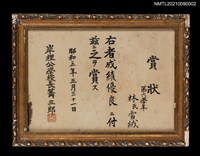 NMTL20210090002
賞狀
第六學年
林氏雪絨
右者成績優良ニ付
茲ニ之ヲ賞ス
昭和三年三月二十一日
岸裡公學校長
三郎